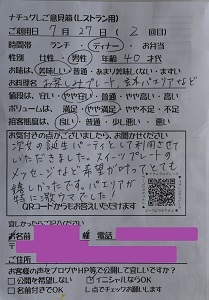 ナチュグレご意見箱(レストラン用)
ご利用日 7月27日(2回目)
時間帯 ランチ・ディナー・お弁当
性別 (女性・男性) 年齢 40才代
お味は、美味しい・普通・あまり美味しくない・まずい
お料理名 お楽しみプレート 玄米パエリアなど
値段は、安い・やや安い・普通・やや高い・高い
ボリュームは 満足・やや満足・やや不足・不足
接客態度は、良い・普通・少し悪い・悪い
お気付きの点がございましたら、お聞かせください
次女の誕生パーティとして利用させて
いただきました。スイーツプレートの
メッセージなど希望が叶ってとても
嬉しかったです。パエリアが
特に激ウマでした!
QRコードからもお答えいただけます
宜しかったらご記入ください
お名前 様 電話
〒
ご住所
お客様の声をブログやHP等で公開して宜しいですか?
□公開を希望しない □イニシャルならOK
□名前付きでOK し点でチェックお願いします